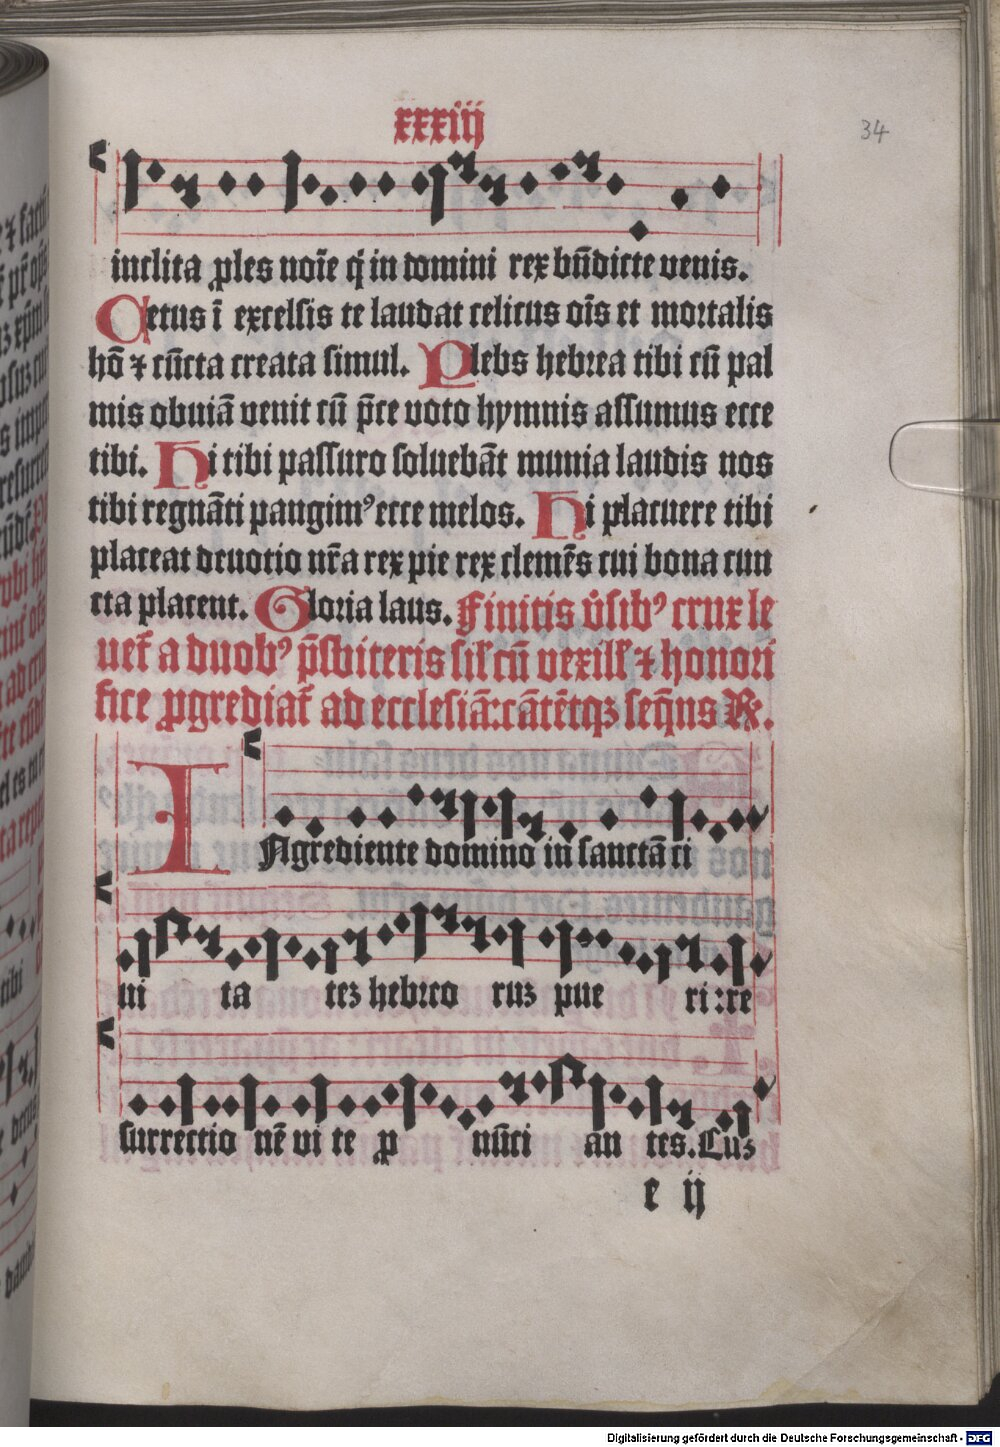 xxxiij
34
inclita ꝓles noīe q̇ in domini rex bn̄dicte venis.
Cetus ī excelsis te laudat celicus oīs et mortalis
hō ⁊ cūcta creata simul. Plebs hebrea tibi cū pal
mis obuiā venit cū p̄ce voto hymnis assumus ecce
tibi. Hi tibi passuro soluebāt munia laudis nos
tibi regnāti pangimꝰ ecce melos. Hi placuere tibi
placeat deuotio nr̄a rex pie rex clemēs cui bona cun
cta placent. Gloria laus. Finitis v̓sibꝰ crux le
uet̄ a duobꝰ p̄sbiteris sil̓ cū vexill̓ ⁊ honori
fice ꝓgrediat̄ ad ecclesiā: cātētqꝫ seq̄ns ℟.
INgrediente domino in sanctā ci
ui ta teꝫ hebreo ruꝫ pue ri: re
surrectio nē vi te ꝓ nūci an tes. Cuꝫ
e ij
Digitalisierung gefördert durch die Deutsche Forschungsgemeinschaft - DFG